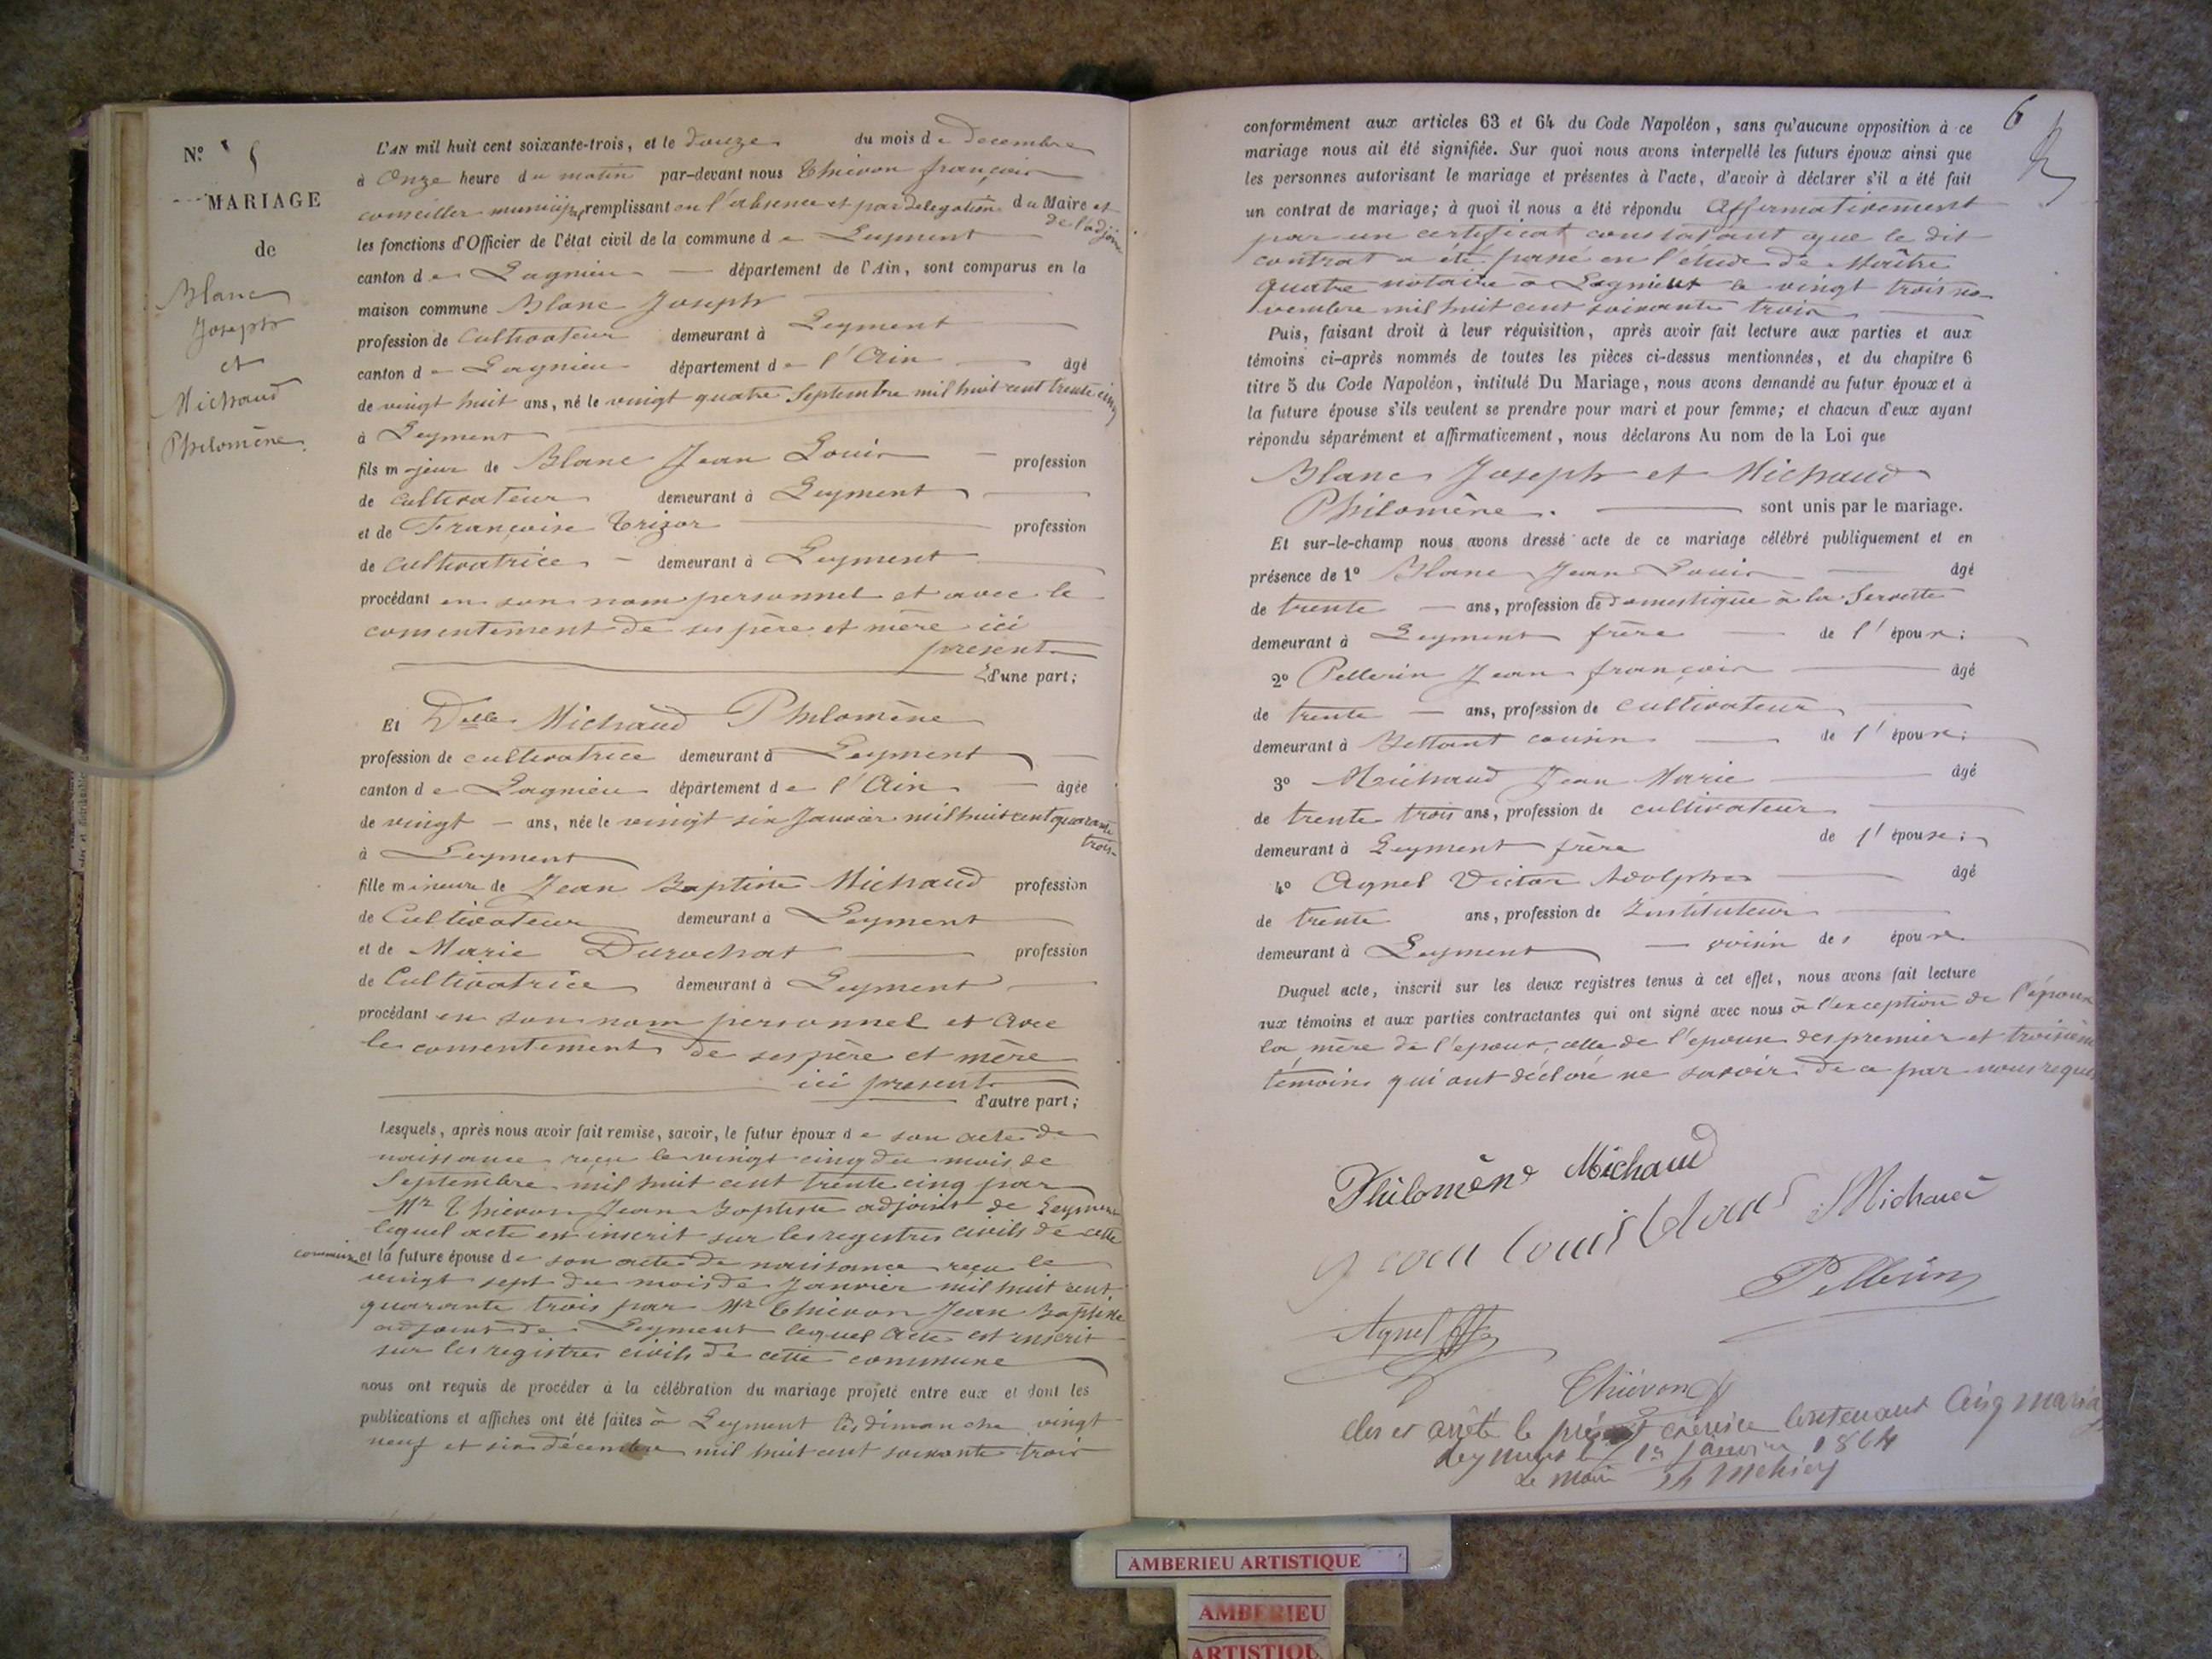 N.° 5
MARIAGE
de
Blanc
Joseph
et
Michaud
Philomène.
L'AN mil huit cent soixante-trois, et le douze du mois de decembre
à Onze heure du matin par-devant nous Thiévon françois
conseiller municipal remplissant en l'absence et par délégation du Maire et
de l'adjoint
les fonctions d'Officier de l'état civil de la commune de Leyment
canton de Lagnieu département de l'Ain, sont comparus en la
maison commune Blanc Joseph
profession de Cultivateur demeurant à Leyment
canton de Lagnieu département de l'Ain âgé
de vingt huit ans, né le vingt quatre Septembre mil huit cent trente cinq
à Leyment
fils majeur de Blanc Jean Louis profession
de cultivateur demeurant à Leyment
et de Françoise profession
de cultivatrice demeurant à Leyment
procédant en son nom personnel et avec le
consentement de ses père et mère ici
present
d'une part;
Et Delle Michaud Philomène
profession de cultivatrice demeurant à Leyment
canton de Lagnieu département de l'Ain âgée
de vingt ans, née le vingt six Janvier mil huit cent quarante
trois
à Leyment
fille mineure de Jean Baptiste Michaud profession
de Cultivateur demeurant à Leyment
et de Marie Durochat profession
de Cultivatrice demeurant à Leyment
procédant en son nom personnel et avec
le consentement de ses père et mère
ici present
d'autre part;
Lesquels, après nous avoir fait remise, savoir, le futur époux de son acte de
naissance reçu le vingt cinq du mois de
Septembre mil huit cent trente cinq par
Mr Thiévon Jean Baptiste adjoint de Leyment
lequel acte est inscrit sur les registres civils de cette
commune et la future épouse de son acte de naissance reçu le
vingt sept du mois de Janvier mil huit cent
quarante trois par Mr Thiévon Jean Baptiste
adjoint de Leyment lequel acte est inscrit
sur les registres civils de cette commune
nous ont requis de procéder à la célébration du mariage projeté entre eux et dont les
publications et affiches ont été faites à Leyment les dimanche vingt
neuf et six décembre mil huit cent soixante trois
6
conformément aux articles 63 et 64 du Code Napoléon, sans qu'aucune opposition à ce
mariage nous ait été signifiée. Sur quoi nous avons interpellé les futurs époux ainsi que
les personnes autorisant le mariage et présentes à l'acte, d'avoir à déclarer s'il a été fait
un contrat de mariage; à quoi il nous a été répondu Affirmativement
par un certificat constatant que le dit
contrat a été passé en l'étude de Maître
quatre notaire à Lagnieu le vingt trois no
vembre mil huit cent soixante trois
Puis, faisant droit à leur réquisition, après avoir fait lecture aux parties et aux
témoins ci-après nommés de toutes les pièces ci-dessus mentionnées, et du chapitre 6
titre 5 du Code Napoléon, intitulé Du Mariage, nous avons demandé au futur époux et à
la future épouse s'ils veulent se prendre pour mari et pour femme; et chacun d'eux ayant
répondu séparément et affirmativement, nous déclarons Au nom de la Loi que
Blanc Joseph et Michaud
Philomène. sont unis par le mariage.
Et sur-le-champ nous avons dressé acte de ce mariage célébré publiquement et en
présence de 1° Blanc Jean Louis âgé
de trente ans, profession de domestique à la Servette
demeurant à Leyment frère de l'époux;
2° Pellerin Jean françois âgé
de trente ans, profession de cultivateur
demeurant à Bettant cousin de l'époux;
3° Michaud Jean Marie âgé
de trente trois ans, profession de cultivateur
demeurant à Leyment frère de l'épouse;
4° Agnel Victor Adolphe âgé
de trente ans, profession de Instituteur
demeurant à Leyment voisin des époux
Duquel acte, inscrit sur les deux registres tenus à cet effet, nous avons fait lecture
aux témoins et aux parties contractantes qui ont signé avec nous à l'exception de l'époux
la mère de l'époux, celle de l'épouse des premier et troisième
témoins qui ont déclaré ne savoir de ce par nous requis
Philomène Michaud
Jean Louis Blanc Michaud
Pellerin
Agnel
Thiévon
clos et arrêté le présent contenant Cinq maria
Leyment le 1er Janvier 1864
Le Maire
AMBERIEU ARTISTIQUE
AMBERIEU
ARTISTIQU